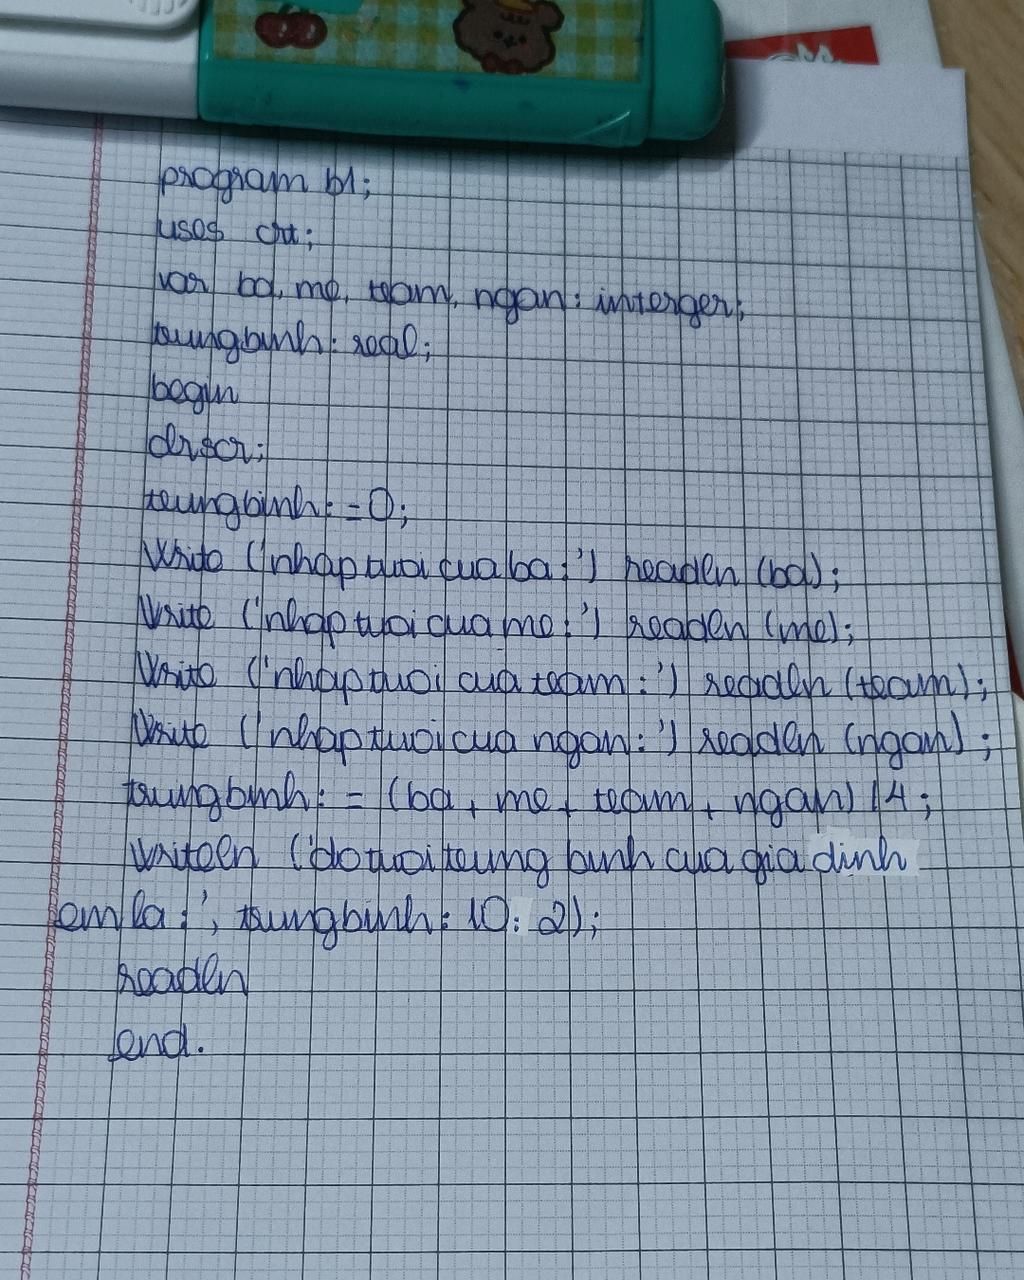 program b1;
uses crt;
var ba, me, tram, ngan: interger;
trungbinh: real;
begin
clrscr;
trungbinh: = 0;
Write ('nhap tuoi cua ba:') readln (ba);
Write ('nhap tuoi cua me:') readln (me);
Write ('nhap tuoi cua tram:') readln (tram);
Write ('nhap tuoi cua ngan:') readln (ngan);
trungbinh: = (ba + me + tram + ngan) / 4;
Writeln ('do tuoi trung binh cua gia dinh
em la:', trungbinh: 10: 2);
readln
end.